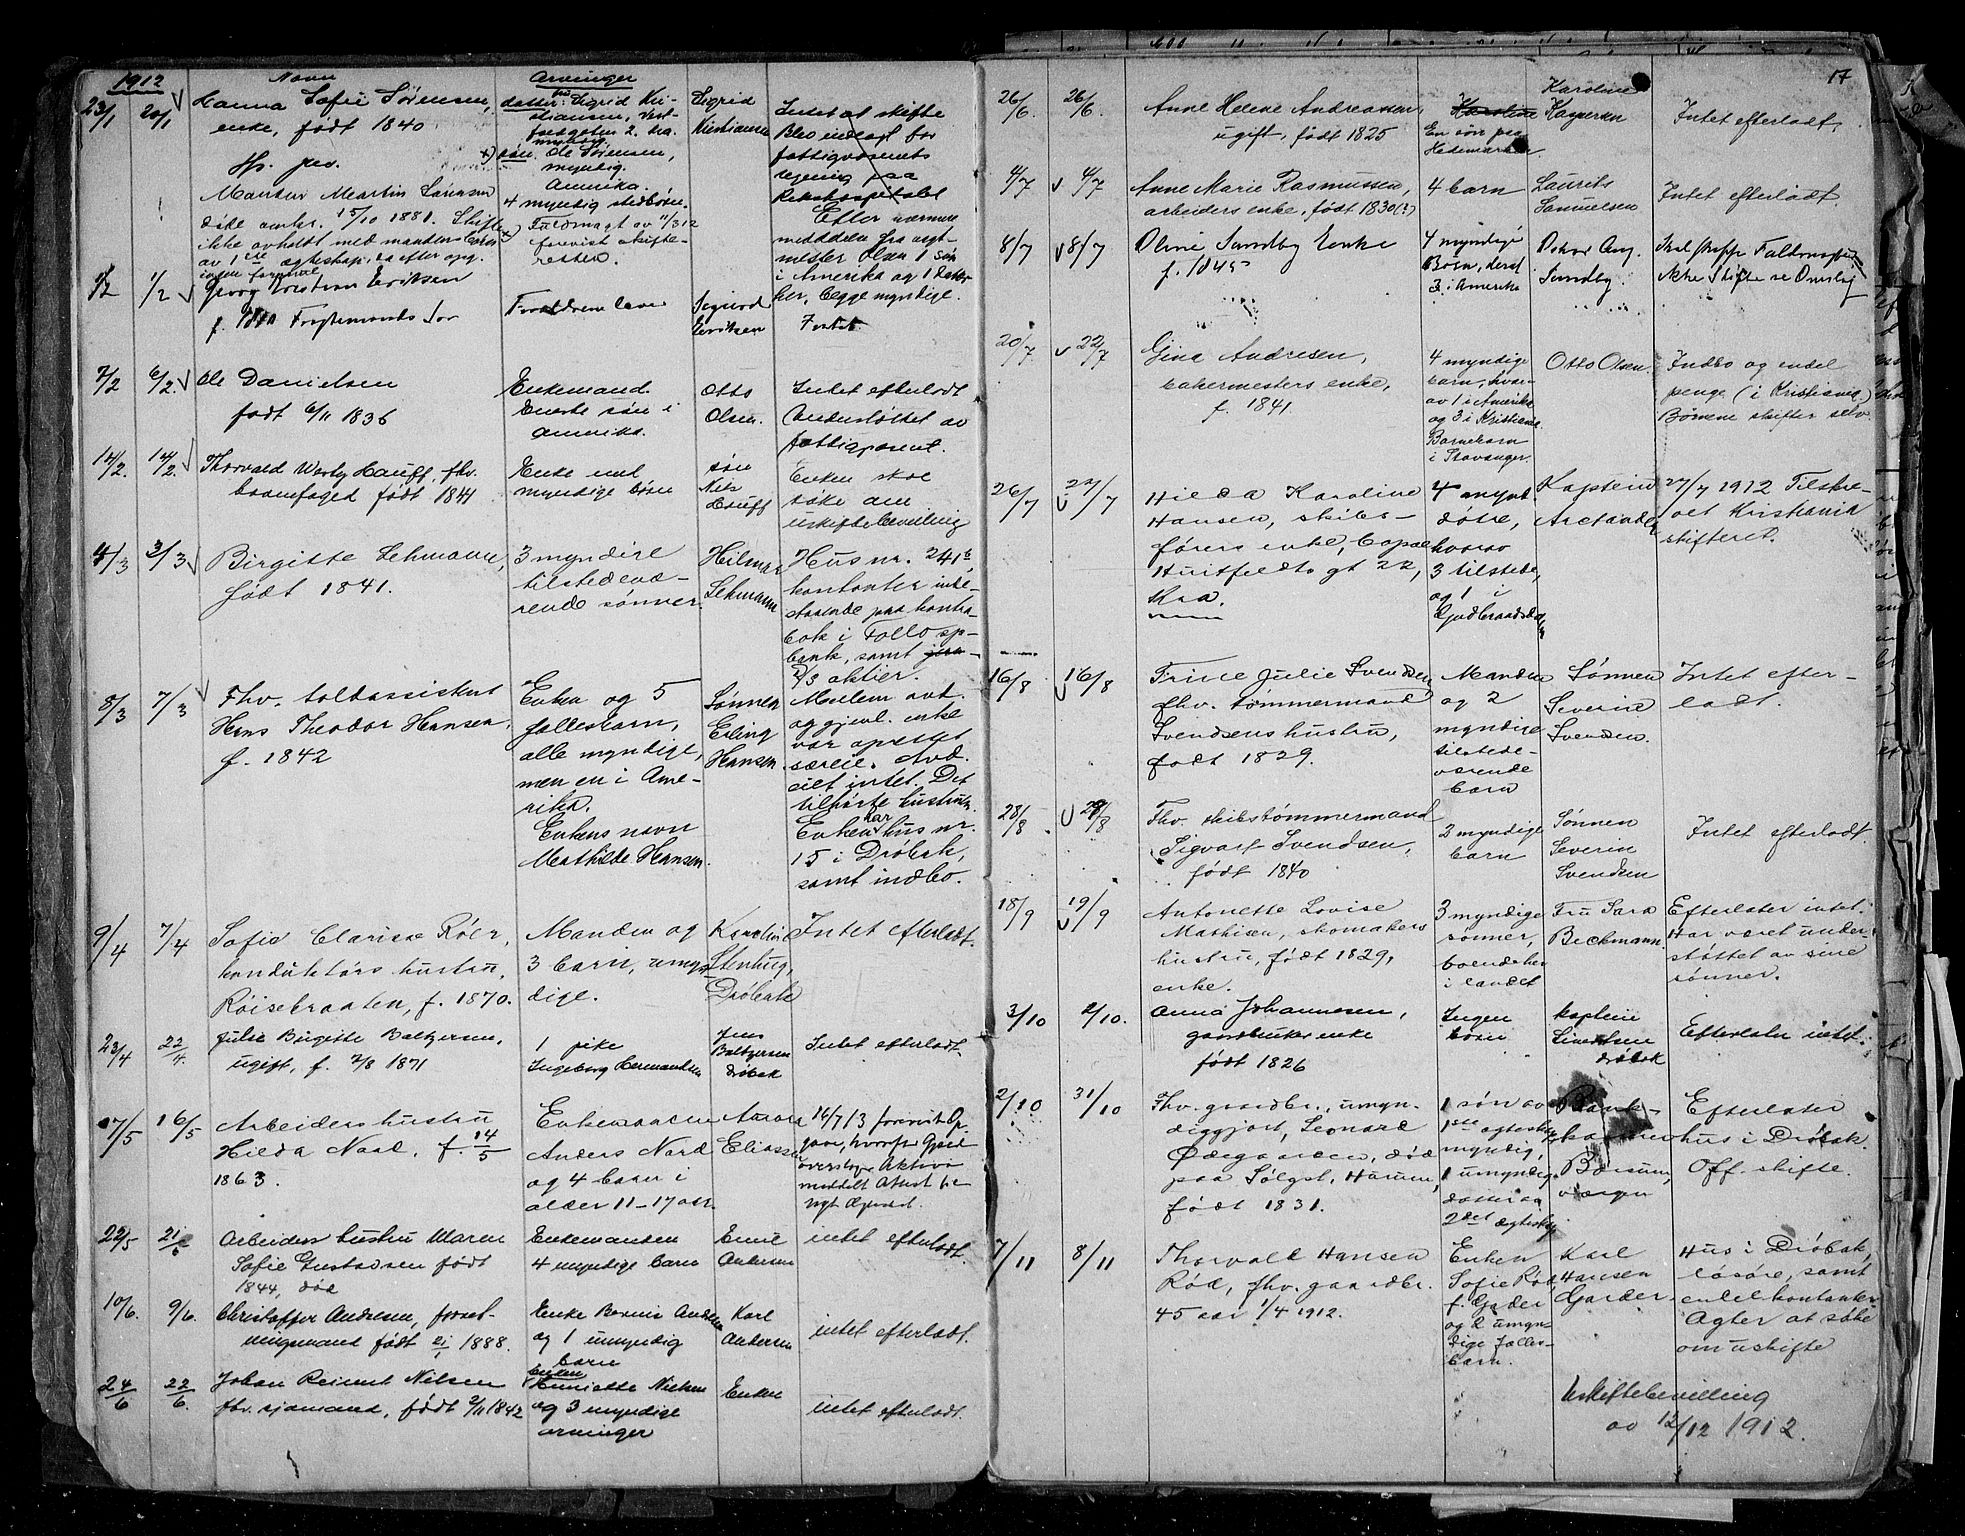 1912
Navn
Arvinger
23/1
20/1
Hanna Sofie Sørensen,
enke, født 1840.
Mandens Martin Sørensen
døde 15/10 1881. Skifte
ikke avholdt med mandens barn
av 1ste egteskap, da efter opg.
ingen formue
datter: fru Sigrid Kri-
stiansen,
gaten 2, Kra.
søn. Ole Sørensen,
myndig.
Amerika.
4 myndig stedbørn.
Fuldmagt av 11/3 12
forevist skifte-
retten.
Sigrid
Kristiansen
Intet at skifte
Blev indlagt for
fattigvæsenets
regning paa
Rikshospitalet
Efter nærmere
meddelelse fra
mester Olsen 1 søn
i Amerika og 1 datter
her, begge myndige.
1/2
1/2
Georg Kristian Eriksen
f.
Forældrene lever
Sigurd
Eriksen
Intet
7/2
6/2
Ole Danielsen
født 6/11 1836
Enkemand.
Eneste søn i
Amerika.
Otto
Olsen.
Intet efterladt
Understøttet av
fattigvæsenet.
14/2.
14/2.
Thorvald Hauff, fhv.
født 1841
Enke med
myndige børn
søn
Nils
Hauff
Enken skal
søke om
uskiftebevilling
4/3
3/3
Birgitte Lehmann,
født 1841.
3 myndige
tilstedevæ-
rende sønner.
Hilmar
Lehmann
Hus nr. 241b,
kontanter inde-
staaende paa kontra-
bok i Follo sp-
bank, samt
aktier.
8/3
7/3
Fhv. toldassistent
Hans Theodor Hansen,
f. 1842
Enken og 5
fællesbarn,
alle myndige,
men en i Ame-
rika.
Enkens navn
Mathilde Hansen.
Sønnen
Erling
Hansen.
Mellem avd.
og gjenl. enke
var oprettet
særeie. Avd.
eiet intet. Det
tilhørte hustruen.
Enken har hus nr.
15 i Drøbak,
samt indbo.
9/4
7/4
Sofie Clarisse Røer,
konduktørs hustru,
Røisebraaten, f. 1870.
Manden og
3 barn, umyn-
dige.
Karoline
Stenhug,
Drøbak
Intet efterladt.
23/4
22/4.
Julie Birgitte Baltzersen,
ugift, f. 2/8 1871
1 pike
Ingeborg Hermansen
Jens
Baltzersen
Drøbak
Intet efterladt.
17/5
16/5
Arbeiders hustru
Hilda Nord, f. 14/5
1863.
Enkemanden
Anders Nord
og 4 barn i
alder 11-17 aar.
Aaron
Eliassen
16/7 13 forevist Op-
gave, hvorefter Gjæld
overstiger Aktiva
meddelt Attest
22/5
21/5
Arbeiders hustru Maren
Sofie Gustavsen født
1844, død
Enkemanden
4 myndige barn
Emil
Andersen
intet efterladt.
10/6.
9/6.
Christoffer Andresen, forret-
ningsmand født 21/1 1888.
Enke
og 1 umyndig
barn
Karl
Andersen
intet efterladt.
24/6
22/6.
Johan Reinert Nilsen
fhv. sjømand, født 2/11 1842
Enken
Henriette Nielsen
og 3 myndige
arvinger
Enken
intet efterladt.
17
26/6.
26/6.
Anne Helene Andreassen,
ugift, født 1825
Karoline
En søn paa
Hedemarken
Karoline
Kaspersen
Intet efterladt.
4/7
4/7
Anne Marie Rasmussen,
arbeiders enke, født 1830(?)
4 barn
Laurits
Samuelsen
Intet efterladt.
8/7
8/7
Oline Sundby Enke
f. 1845
4 myndige
Børn, deraf
3 i Amerika
Oskar Aug.
Sundby.
Skal skaffe Fuldmagt
ikke Skifte se Omslag
20/7
22/7
Gina Andresen,
bakermesters enke,
f. 1841.
4 myndige
barn, hvor-
av 1 i Amerika
og 3 i Kristiania.
Barnebarn
i Stavanger.
Otto Olsen.
Indbo og endel
penge (i Kristiania.)
Børnene skifter selv.
26/7
27/7
Hilda Karoline
Hansen, skibs-
førers enke,
Huitfeldts gt 22,
Kra.
4 mynd.
døtre,
hvorav
3 tilstede,
og 1 i
Gudbrandsdalen
Kaptein
27/7 1912 Tilskre-
vet Kristiania
skifteret.
16/8
16/8
Trine Julie Svendsen,
fhv. tømmermand
Svendsens hustru,
født 1829.
Manden
og 2
myndige
tilstede-
værende
barn
Sønnen
Severin
Svendsen.
Intet efter-
ladt.
28/8
29/8
Fhv. skibstømmermand
Sigvart Svendsen,
født 1840
2 myndige
barn
Sønnen
Severin
Svendsen
Intet efterladt.
18/9
19/9
Antonette Lovise
Mathisen, skomakers
hustru, født 1829,
enke.
3 myndige
sønner,
boende her
i landet
Fru Sara
Beckmann.
Efterlater intet.
Har været under-
støttet av sine
sønner.
3/10
2/10.
Anna Johannesen,
gaardbruker enke
født 1826
Ingen
børn
kaptein
Sivertsen
Drøbak
Efterlater intet.
2/10
31/10
Fhv. gaardbr., umyn-
diggjort, Leonard
Ødegaarden, død
paa Solgst, Hurum,
født 1831.
1 søn av
1ste egteskap,
myndig,
1 umyndig
datter av
2det egteskap
Bank-
kasserer
Bærum,
værgen
Efterlater
hus i Drøbak.
Off. skifte.
7/11
8/11
Thorvald Hansen
Rød, fhv. gaardbr.
45 aar 1/4 1912.
Enken
Sofie Rød,
f. Garder
og 2 umyn-
dige fælles-
barn.
Karl
Hansen
Garder.
Hus i Drøbak,
løsøre, samt
endel kontanter
Agter at søke
om uskifte
Uskiftebevilling
av 12/12 1912.